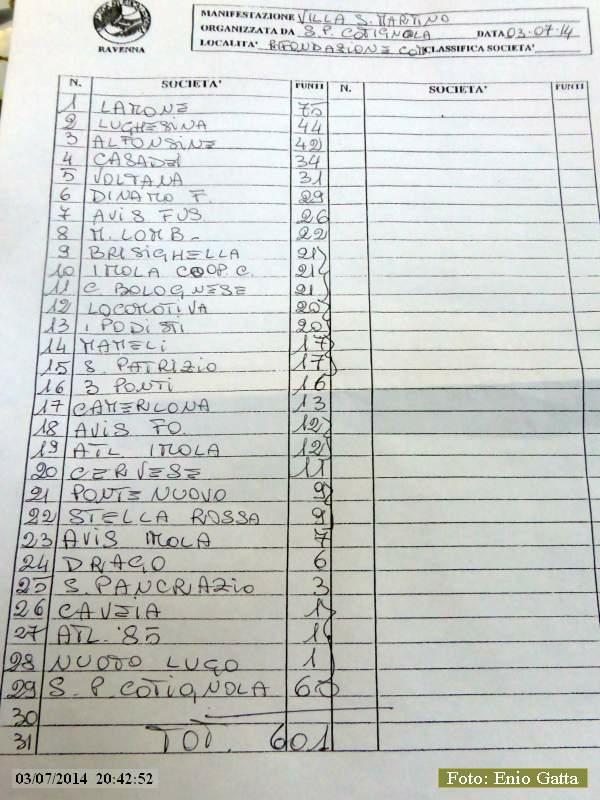 RAVENNA
MANIFESTAZIONE VILLA S. MARTINO
ORGANIZZATA DA S.P. COTIGNOLA DATA 03-07-14
LOCALITA' RIFONDAZIONE COM CLASSIFICA SOCIETA'
N. SOCIETA' PUNTI N. SOCIETA' PUNTI
1 LAMONE 75
2 LUGHESINA 44
3 ALFONSINE 42
4 CASADEI 34
5 VOLTANA 31
6 DINAMO F. 29
7 AVIS FUS 26
8 M. LOMB. 22
9 BRISIGHELLA 21
10 IMOLA COOP. C. 21
11 C. BOLOGNESE 21
12 LOCOMOTIVA 20
13 I PODISTI 20
14 MAMELI 17
15 S. PATRIZIO 17
16 3 PONTI 16
17 CAMERLONA 13
18 AVIS FO. 12
19 ATL IMOLA 12
20 CERVESE 11
21 PONTE NUOVO 9
22 STELLA ROSSA 9
23 AVIS IMOLA 7
24 DRAGO 6
25 S. PANCRAZIO 3
26 CAVEIA 1
27 ATL. '85 1
28 NUOVO LUGO 1
29 S. P. COTIGNOLA 60
30
31 TOT. 601
03/07/2014 20:42:52
Foto: Enio Gatta